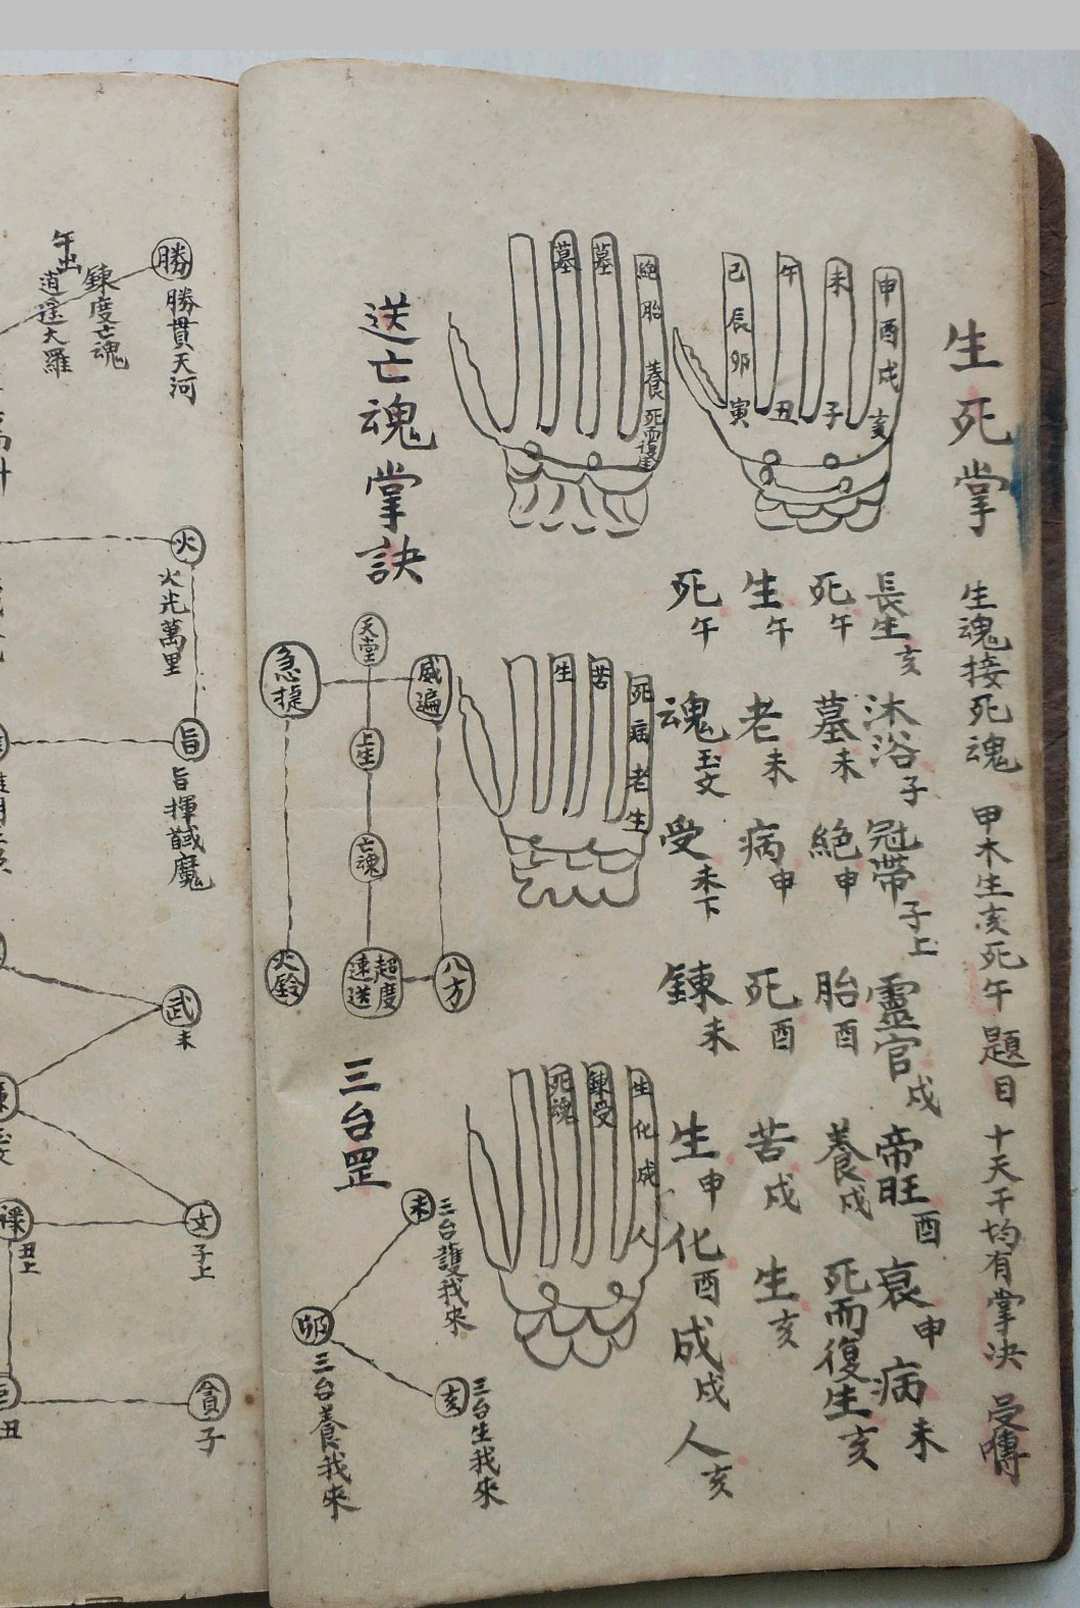 生死掌
生魂接死魂 甲木生亥死午 題目 十天干均有掌决 受
長生亥 沐浴子 冠帶子上 靈官戍 帝旺酉 衰申 病未
死午 墓未 絕申 胎酉 養戍 死而復生亥
生午 老未 病申 死酉 苦戍 生亥
死午 魂玉文 受未下 鍊未 生申 化酉 成戍 人亥
申酉戍亥
未 子
午 丑
巳辰卯寅
絕胎 養 死而復生
墓
墓
死病老生
苦
生
生化成人
鍊受
死魂
送亡魂掌訣
威遍
天堂
急捉
上生
亡魂
八方
超度
速送
火鈴
三台罡
未
三台護我來
卯
三台養我來
亥
三台生我來
勝
勝貫天河
鍊度亡魂
午出
逍遥大羅
火
火光萬里
旨
旨揮馘魔
武
未
文
子上
祿
丑上
貪
子
丑